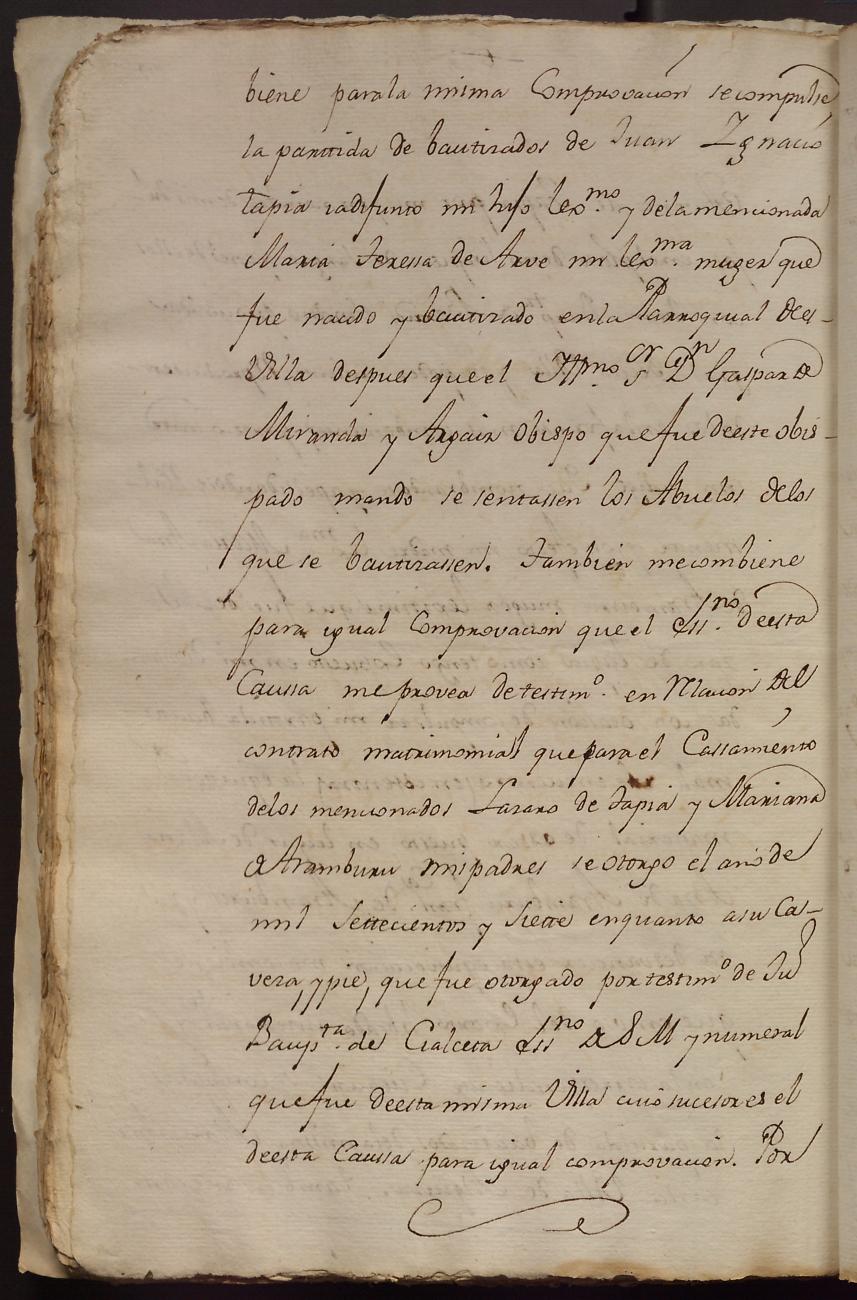 biene para la misma Comprovación se compulse
la partida de bautizados de Juan Ygnacio
tapia iadifunto mi hijo lexmo. y de la mencionada
Maria Teressa de Arve mi lexma. muger que
fue nacido y bautizado en la Parroquial de es-
Villa despues que el Yllmo. Sr Dn Gaspar de
Miranda y Argaiz Obispo que fue de este obis-
pado mando se sentassen los Abuelos de los
que se bautizassen. Tambien me combiene
para igual Comprovacion que el Essno. de esta
Caussa me provea de testimo. en relacion del
contrato matrimonial que para el Cassamiento
de los mencionados Lazaro de Tapia y Mariana
de Aramburu mis padres se otorgo el año de
mil Settecientos y Siette en quanto a su Ca-
vera, y pie, que fue otorgado por testimo de Jun
Baupta. de Cialceta Essno de S M y numeral
que fue de esta misma Villa cuio sucesor es el
de esta Caussa para igual comprovacion. Por